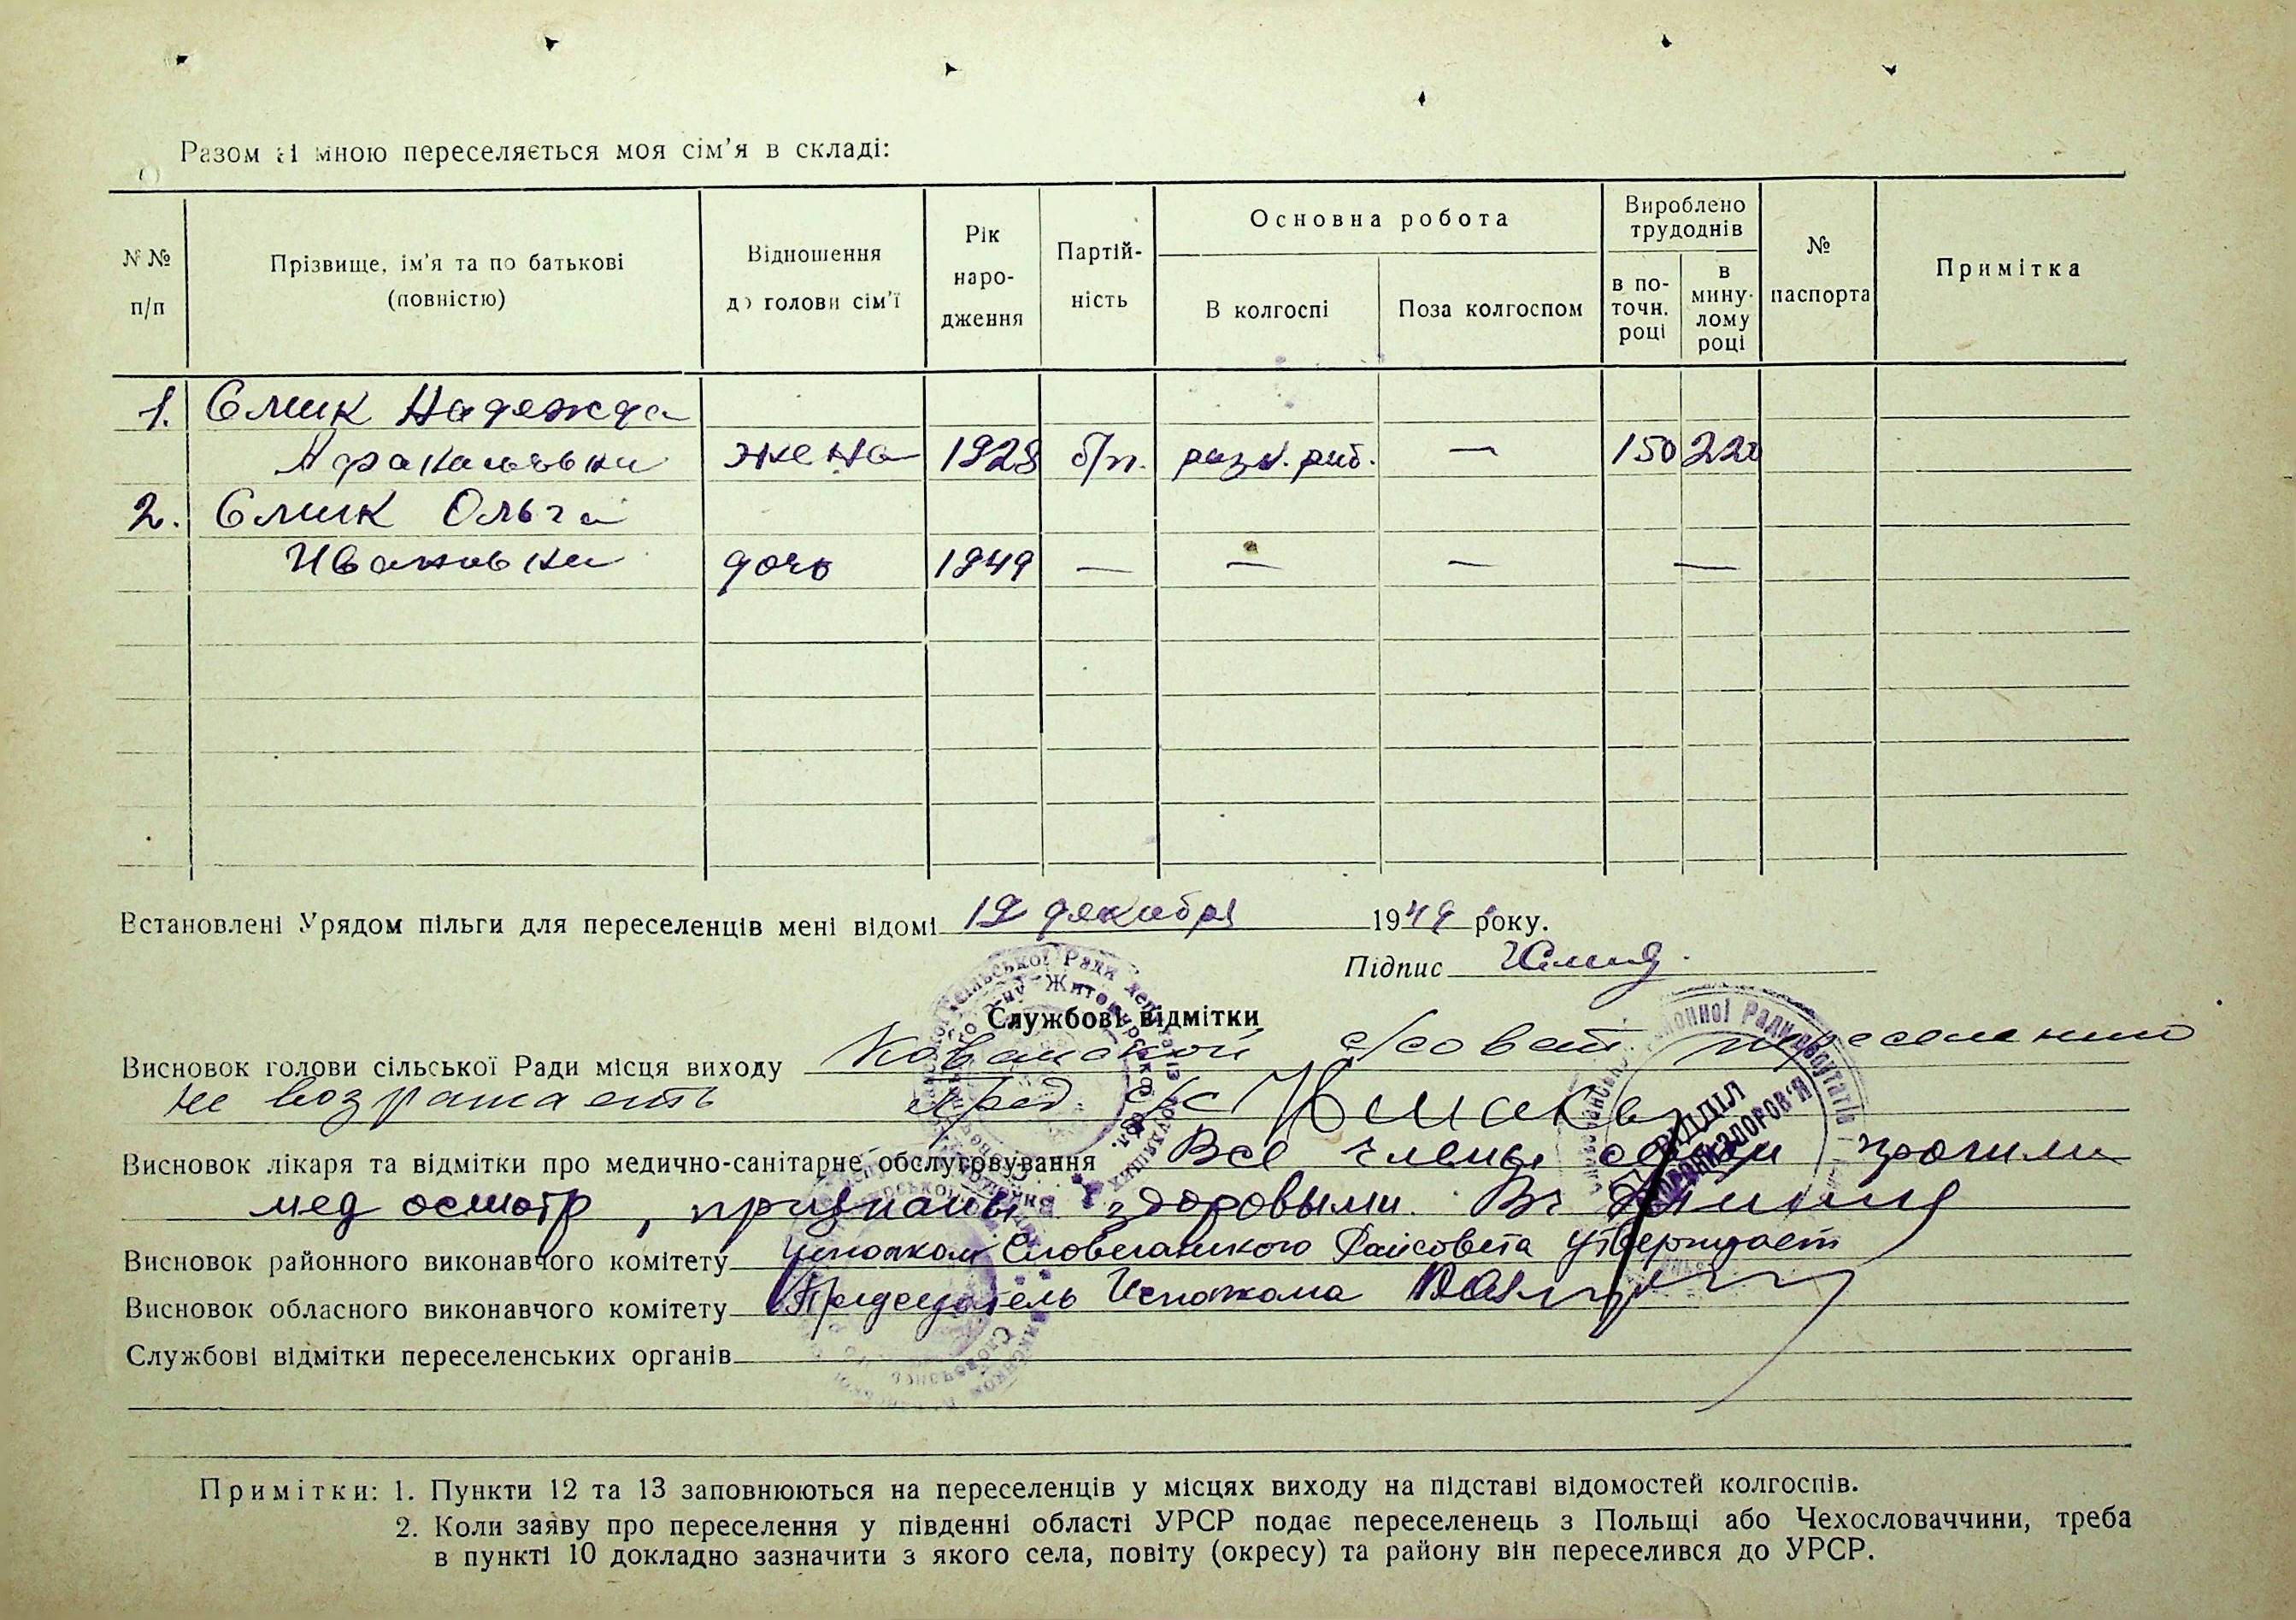 Разом зі мною переселяється моя сім'я в складі:
№ № п/п
Прізвище, ім'я та по батькові (повністю)
Відношення до голови сім'ї
Рік народження
Партій-ність
Основна робота
В колгоспі
Поза колгоспом
Вироблено трудоднів
в по-точн. році
в мину-лому році
№ паспорта
Примітка
1. Смик Надежда
жена 1928 б/п. — 150 220
2. Смик Ольга
Ивановна дочь 1949 — — — —
Встановлені Урядом пільги для переселенців мені відомі 19 декабря 1949 року.
Підпис
Службові відмітки
Висновок голови сільської Ради місця виходу с/совет переселению
не возражает Пред. с/с
Висновок лікаря та відмітки про медично-санітарне обслуговування Все члены семьи прошли
мед осмотр, признаны здоровыми. Вр
Висновок районного виконавчого комітету Исполком Словечанского Райсовета утверждает
Висновок обласного виконавчого комітету Председатель Исполкома
Службові відмітки переселенських органів
Примітки: 1. Пункти 12 та 13 заповнюються на переселенців у місцях виходу на підставі відомостей колгоспів.
2. Коли заяву про переселення у південні області УРСР подає переселенець з Польщі або Чехословаччини, треба
в пункті 10 докладно зазначити з якого села, повіту (окресу) та району він переселився до УРСР.